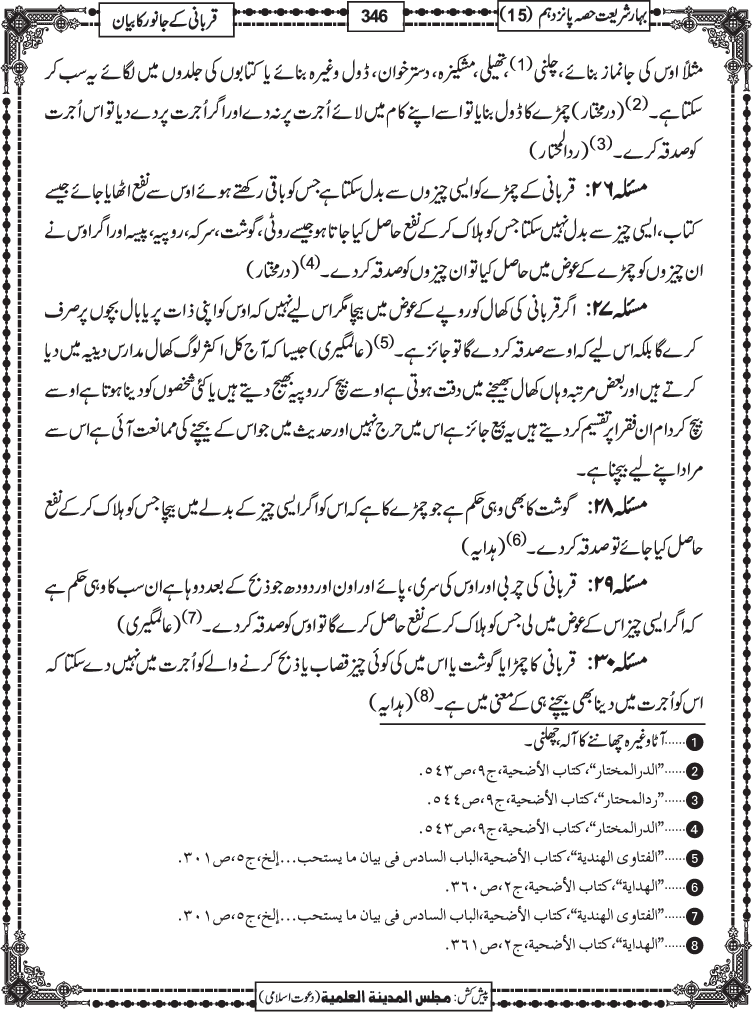 بہار شریعت حصہ پانزدہم (15)
346
قربانی کے جانور کا بیان
مثلاً اوس کی جانماز بنائے، چلنی(1)، تھیلی، مشکیزہ، دسترخوان، ڈول وغیرہ بنائے یا کتابوں کی جلدوں میں لگائے یہ سب کر
سکتا ہے۔(2) (درمختار) چمڑے کا ڈول بنایا تو اسے اپنے کام میں لائے اُجرت پر نہ دے اور اگر اُجرت پر دے دیا تو اس اُجرت
کو صدقہ کرے۔(3) (ردالمحتار)
مسئلہ ۲۶: قربانی کے چمڑے کو ایسی چیزوں سے بدل سکتا ہے جس کو باقی رکھتے ہوئے اوس سے نفع اٹھایا جائے جیسے
کتاب، ایسی چیز سے بدل نہیں سکتا جس کو ہلاک کر کے نفع حاصل کیا جاتا ہو جیسے روٹی، گوشت، سرکہ، روپیہ، پیسہ اور اگر اوس نے
ان چیزوں کو چمڑے کے عوض میں حاصل کیا تو ان چیزوں کو صدقہ کردے۔(4) (درمختار)
مسئلہ ۲۷: اگر قربانی کی کھال کو روپے کے عوض میں بیچا مگر اس لیے نہیں کہ اوس کو اپنی ذات پر یا بال بچوں پر صرف
کرے گا بلکہ اس لیے کہ اوسے صدقہ کردے گا تو جائز ہے۔(5) (عالمگیری) جیسا کہ آج کل اکثر لوگ کھال مدارس دینیہ میں دیا
کرتے ہیں اور بعض مرتبہ وہاں کھال بھیجنے میں دقت ہوتی ہے اوسے بیچ کر روپیہ بھیج دیتے ہیں یا کئی شخصوں کو دینا ہوتا ہے اوسے
بیچ کر دام ان فقرا پر تقسیم کر دیتے ہیں یہ بیع جائز ہے اس میں حرج نہیں اور حدیث میں جو اس کے بیچنے کی ممانعت آئی ہے اس سے
مراد اپنے لیے بیچنا ہے۔
مسئلہ ۲۸: گوشت کا بھی وہی حکم ہے جو چمڑے کا ہے کہ اس کو اگر ایسی چیز کے بدلے میں بیچا جس کو ہلاک کر کے نفع
حاصل کیا جائے تو صدقہ کردے۔(6) (ہدایہ)
مسئلہ ۲۹: قربانی کی چربی اور اوس کی سری، پائے اور اون اور دودھ جو ذبح کے بعد دوہا ہے ان سب کا وہی حکم ہے
کہ اگر ایسی چیز اس کے عوض میں لی جس کو ہلاک کر کے نفع حاصل کرے گا تو اوس کو صدقہ کردے۔(7) (عالمگیری)
مسئلہ ۳۰: قربانی کا چمڑا یا گوشت یا اس میں کی کوئی چیز قصاب یا ذبح کرنے والے کو اُجرت میں نہیں دے سکتا کہ
اس کو اُجرت میں دینا بھی بیچنے ہی کے معنی میں ہے۔(8) (ہدایہ)
1 ......آٹا وغیرہ چھاننے کا آلہ، چھلنی۔
2 ......”الدرالمختار“، کتاب الأضحیة، ج۹، ص۵٤۳.
3 ......”ردالمحتار“، کتاب الأضحیة، ج۹، ص۵٤٤.
4 ......”الدرالمختار“، کتاب الأضحیة، ج۹، ص۵٤۳.
5 ......”الفتاوی الهندیة“، کتاب الأضحیة، الباب السادس فی بیان ما یستحب...إلخ، ج۵، ص۳۰۱.
6 ......”الهدایة“، کتاب الأضحیة، ج۲، ص۳٦۰.
7 ......”الفتاوی الهندیة“، کتاب الأضحیة، الباب السادس فی بیان ما یستحب...إلخ، ج۵، ص۳۰۱.
8 ......”الهدایة“، کتاب الأضحیة، ج۲، ص۳٦۱.
پیش کش: مجلس المدینة العلمیة (دعوت اسلامی)